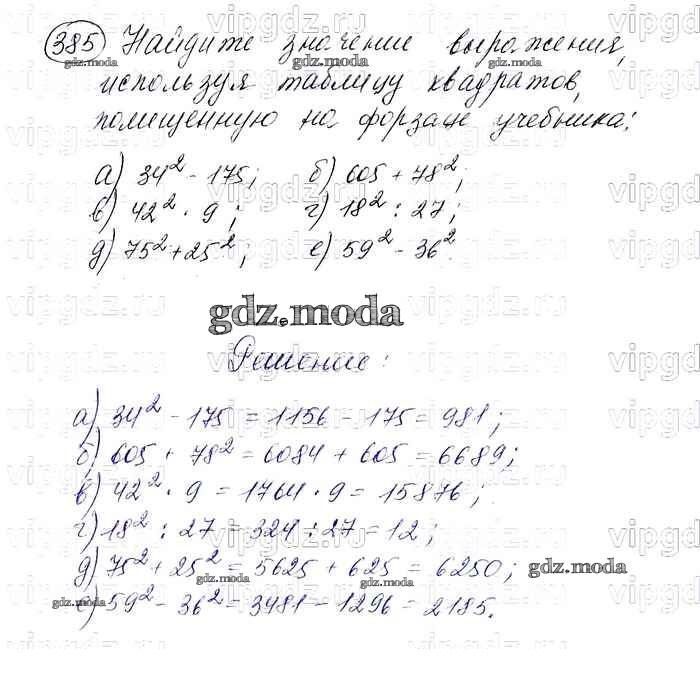 385 Найдите значение выражения,
используя таблицу квадратов,
помещенную на форзаце учебника:
а) 34² - 175; б) 605 + 78²;
в) 42² · 9; г) 18² : 27;
д) 75² + 25²; е) 59² - 36²
gdz.moda
Решение:
а) 34² - 175 = 1156 - 175 = 981;
б) 605 + 78² = 6084 + 605 = 6689;
в) 42² · 9 = 1764 · 9 = 15876;
г) 18² : 27 = 324 : 27 = 12;
д) 75² + 25² = 5625 + 625 = 6250;
е) 59² - 36² = 3481 - 1296 = 2185.
gdz.moda
gdz.moda
gdz.moda
gdz.moda
vipgdz.ru